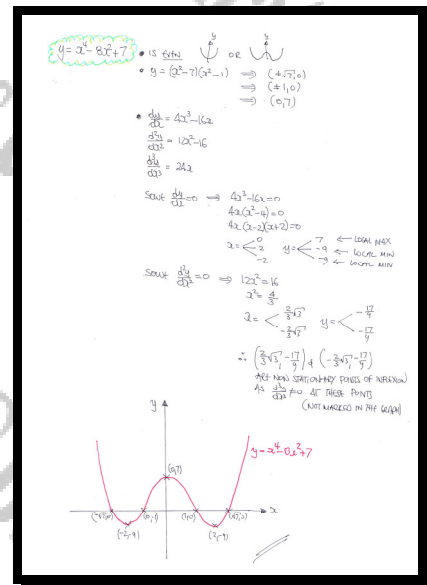 y = x⁴ - 8x² + 7
• IS EVEN OR
y
y
• y = (x²-7)(x²-1) ⟹ (±√7,0)
⟹ (±1,0)
⟹ (0,7)
• dy/dx = 4x³-16x
d²y/dx² = 12x²-16
d³y/dx³ = 24x
SOLVE dy/dx = 0 ⟹ 4x³-16x=0
4x(x²-4)=0
4x(x-2)(x+2)=0
x = 0 y = 7 ← LOCAL MAX
2 -9 ← LOCAL MIN
-2 -9 ← LOCAL MIN
SOLVE d²y/dx² = 0 ⟹ 12x² = 16
x² = 4/3
x = 2/3√3 y = -17/9
-2/3√3 -17/9
∴ (2/3√3, -17/9) & (-2/3√3, -17/9)
ARE NON STATIONARY POINTS OF INFLEXION
AS d³y/dx³ ≠ 0 AT THESE POINTS
(NOT MARKED IN THE GRAPH)
y
y = x⁴-8x²+7
(0,7)
(-√7,0) (1,0) (√7,0) x
(-2,-9) (2,-9)